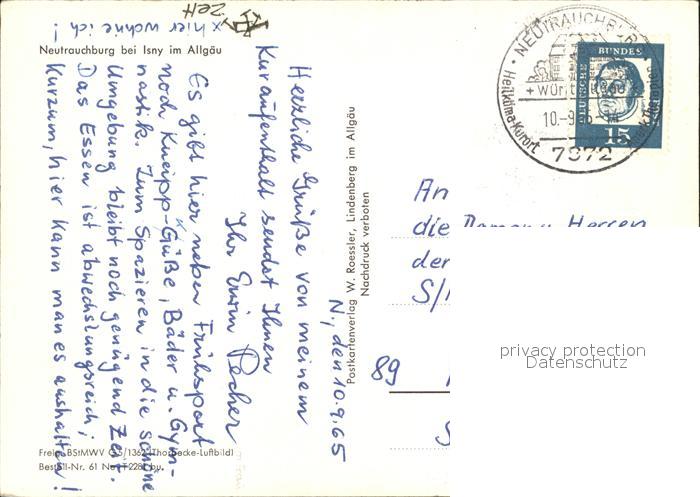 x hier wohne ich!
Neutrauchburg bei Isny im Allgäu
N., den 10.9.65
Herzliche Grüße von meinem
Kuraufenthalt sendet Ihnen
Ihr Erwin Pecher
Es gibt hier neben Frühsport
noch Kneipp-Güße, Bäder u. Gym-
nastik. Zum Spazieren in die schöne
Umgebung bleibt noch genügend Zeit.
Das Essen ist abwechslungsreich;
Kurzum, hier kann man es aushalten!
Freig. BStMWV G 5/1362 (Thorbecke-Luftbild)
Bestell-Nr. 61 Ne
Postkartenverlag W. Roessler, Lindenberg im Allgäu
Nachdruck verboten
NEUTRAUCHBURG
Heilklima-Kurort
10.-9.65
7972
DEUTSCHE BUNDES
15
An
die Damen u. Herren
der
89
privacy protection
Datenschutz